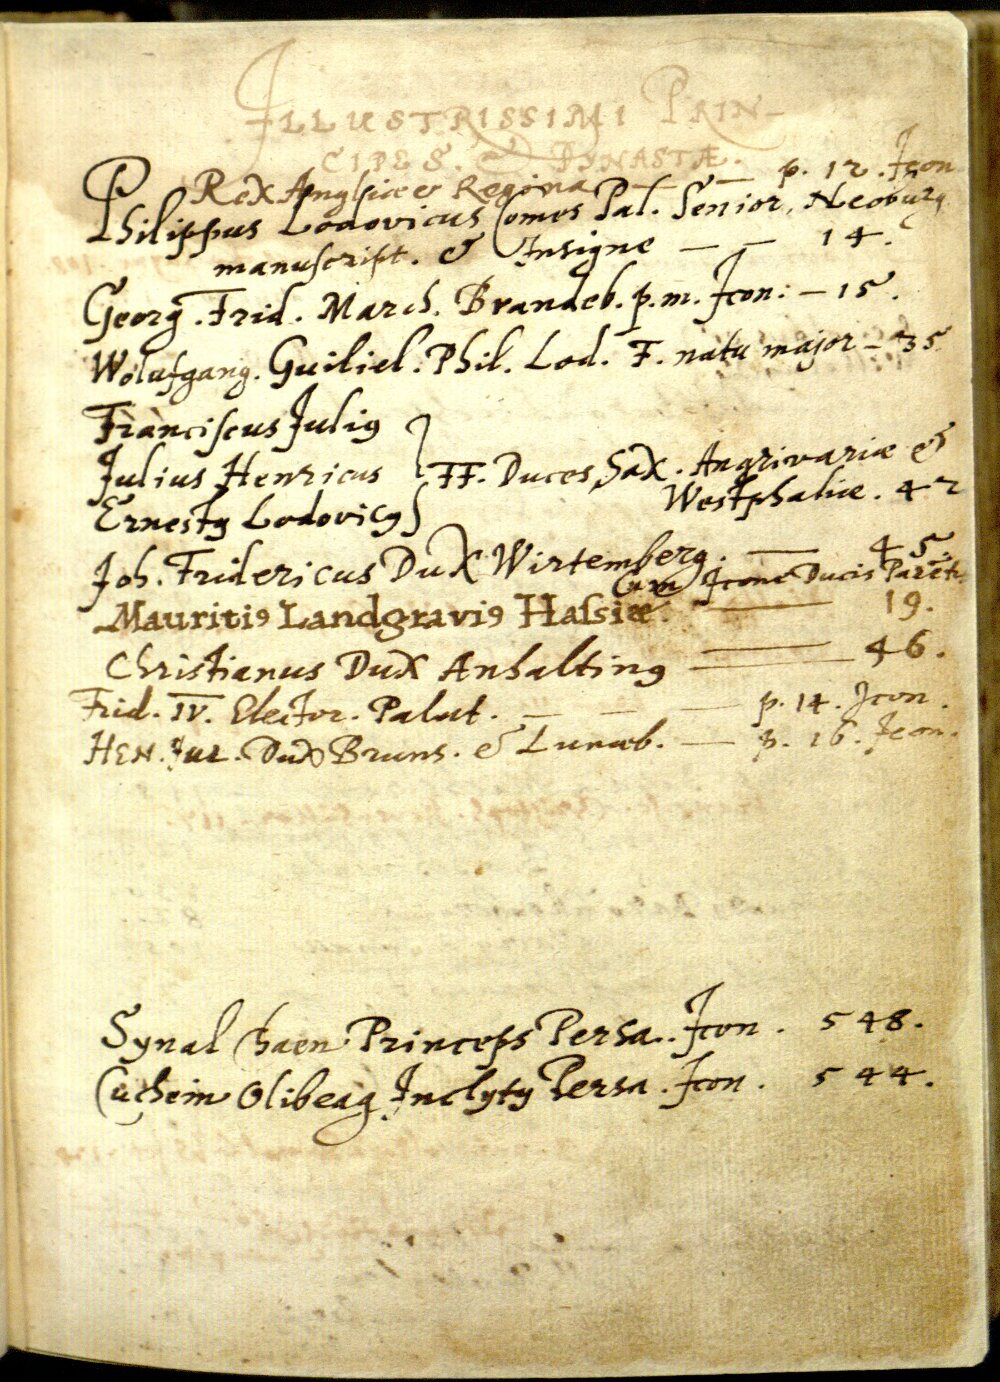 ILLUSTRISSIMI PRIN-
CIPES. & DYNASTÆ.
Rex Angliæ & Regina — — p. 12. Icon
Philippus Lodovicus Comes Pal. Senior, Neoburg
manuscript. & Insigne — — 14.
Georg. Frid. March. Brandeb. p. m. Icon: — 15.
Wolufgang. Guiliel. Phil. Lod. F. natu major — 35
Franciscus Juli9
Julius Henricus } FF. Duces Sax. Angrivariæ &
Westphaliæ. 42
Ernest9 Lodovic9
Joh. Fridericus Dux Wirtemberg. — 45.
Cum Icone Ducis Parēt.
Mauriti9 Landgravi9 Hassiæ. — 19.
Christianus Dux Anhaltin9 — 46.
Frid. IV. Elector. Palat. — — — p. 14. Icon.
HEN. JUL. Dux Bruns. & Lunæb. — p. 16. Icon.
Synal Chaen Princeps Persa. Icon. 548.
Cuchein Olibeag Inclyt9 Persa. Icon. 544.